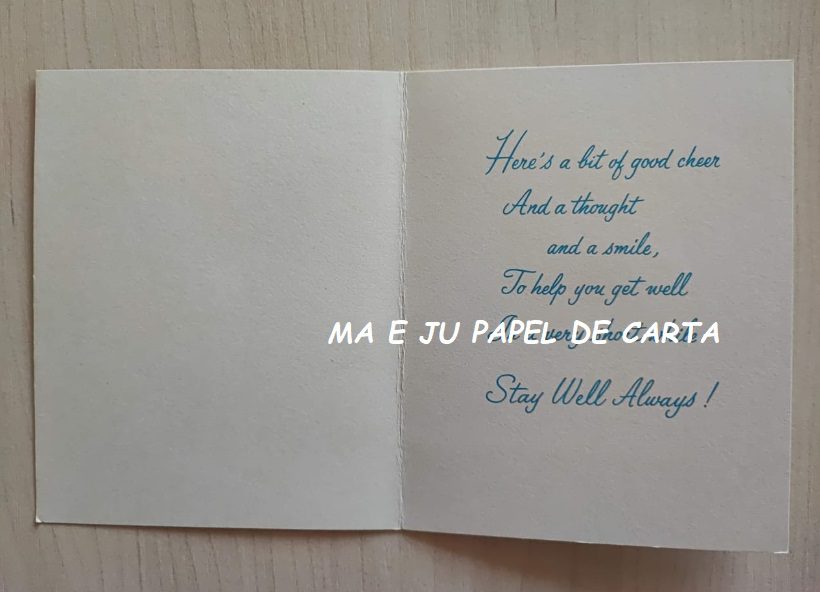 Here's a bit of good cheer
And a thought
and a smile,
To help you get well
In a very short while
MA E JU PAPEL DE CARTA
Stay Well Always!